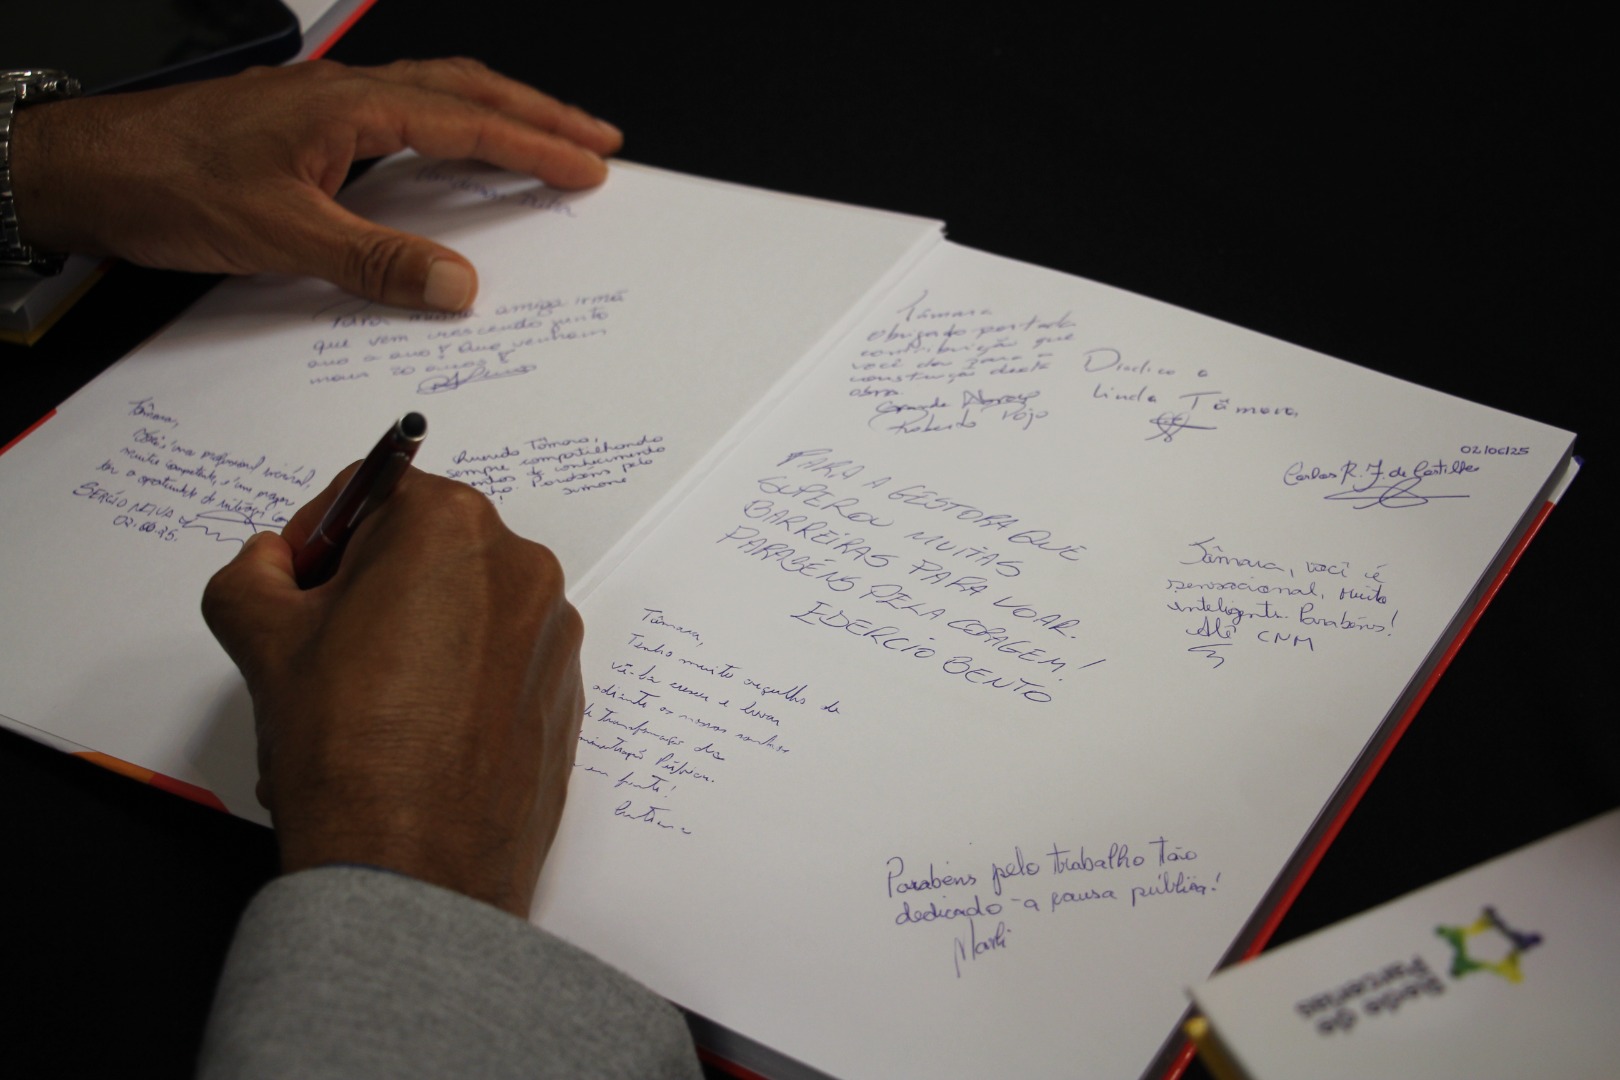 Para minha amiga irmã
que vem crescendo junto
ano a ano! Que venham
mais 20 anos!
Tâmara,
profissional incrível,
muito competente, é um prazer
ter a oportunidade de interagir com
SERGIO NEIVA
02.06.25.
Querida Tâmara,
sempre compartilhando
de conhecimento
Parabéns pelo
Simone
Tâmara
obrigado por toda
contribuição que
você deu para a
construção desta
obra.
Grande Abraço
Roberto Pojo
Dedico a
linda Tâmara,
02/06/25
Carlos R. J. de Castilho
PARA A GESTORA QUE
SUPEROU MUITAS
BARREIRAS PARA VOAR.
PARABÉNS PELA CORAGEM!
EDERCIO BENTO
Tâmara, você é
sensacional, muito
inteligente. Parabéns!
Alê CNM
Tâmara,
Tenho muito orgulho de
vê-la crescer e levar
adiante os nossos sonhos
de transformação da
Pública.
em frente!
Parabéns pelo trabalho tão
dedicado a causa pública!
Marli
Rede de
Parcerias